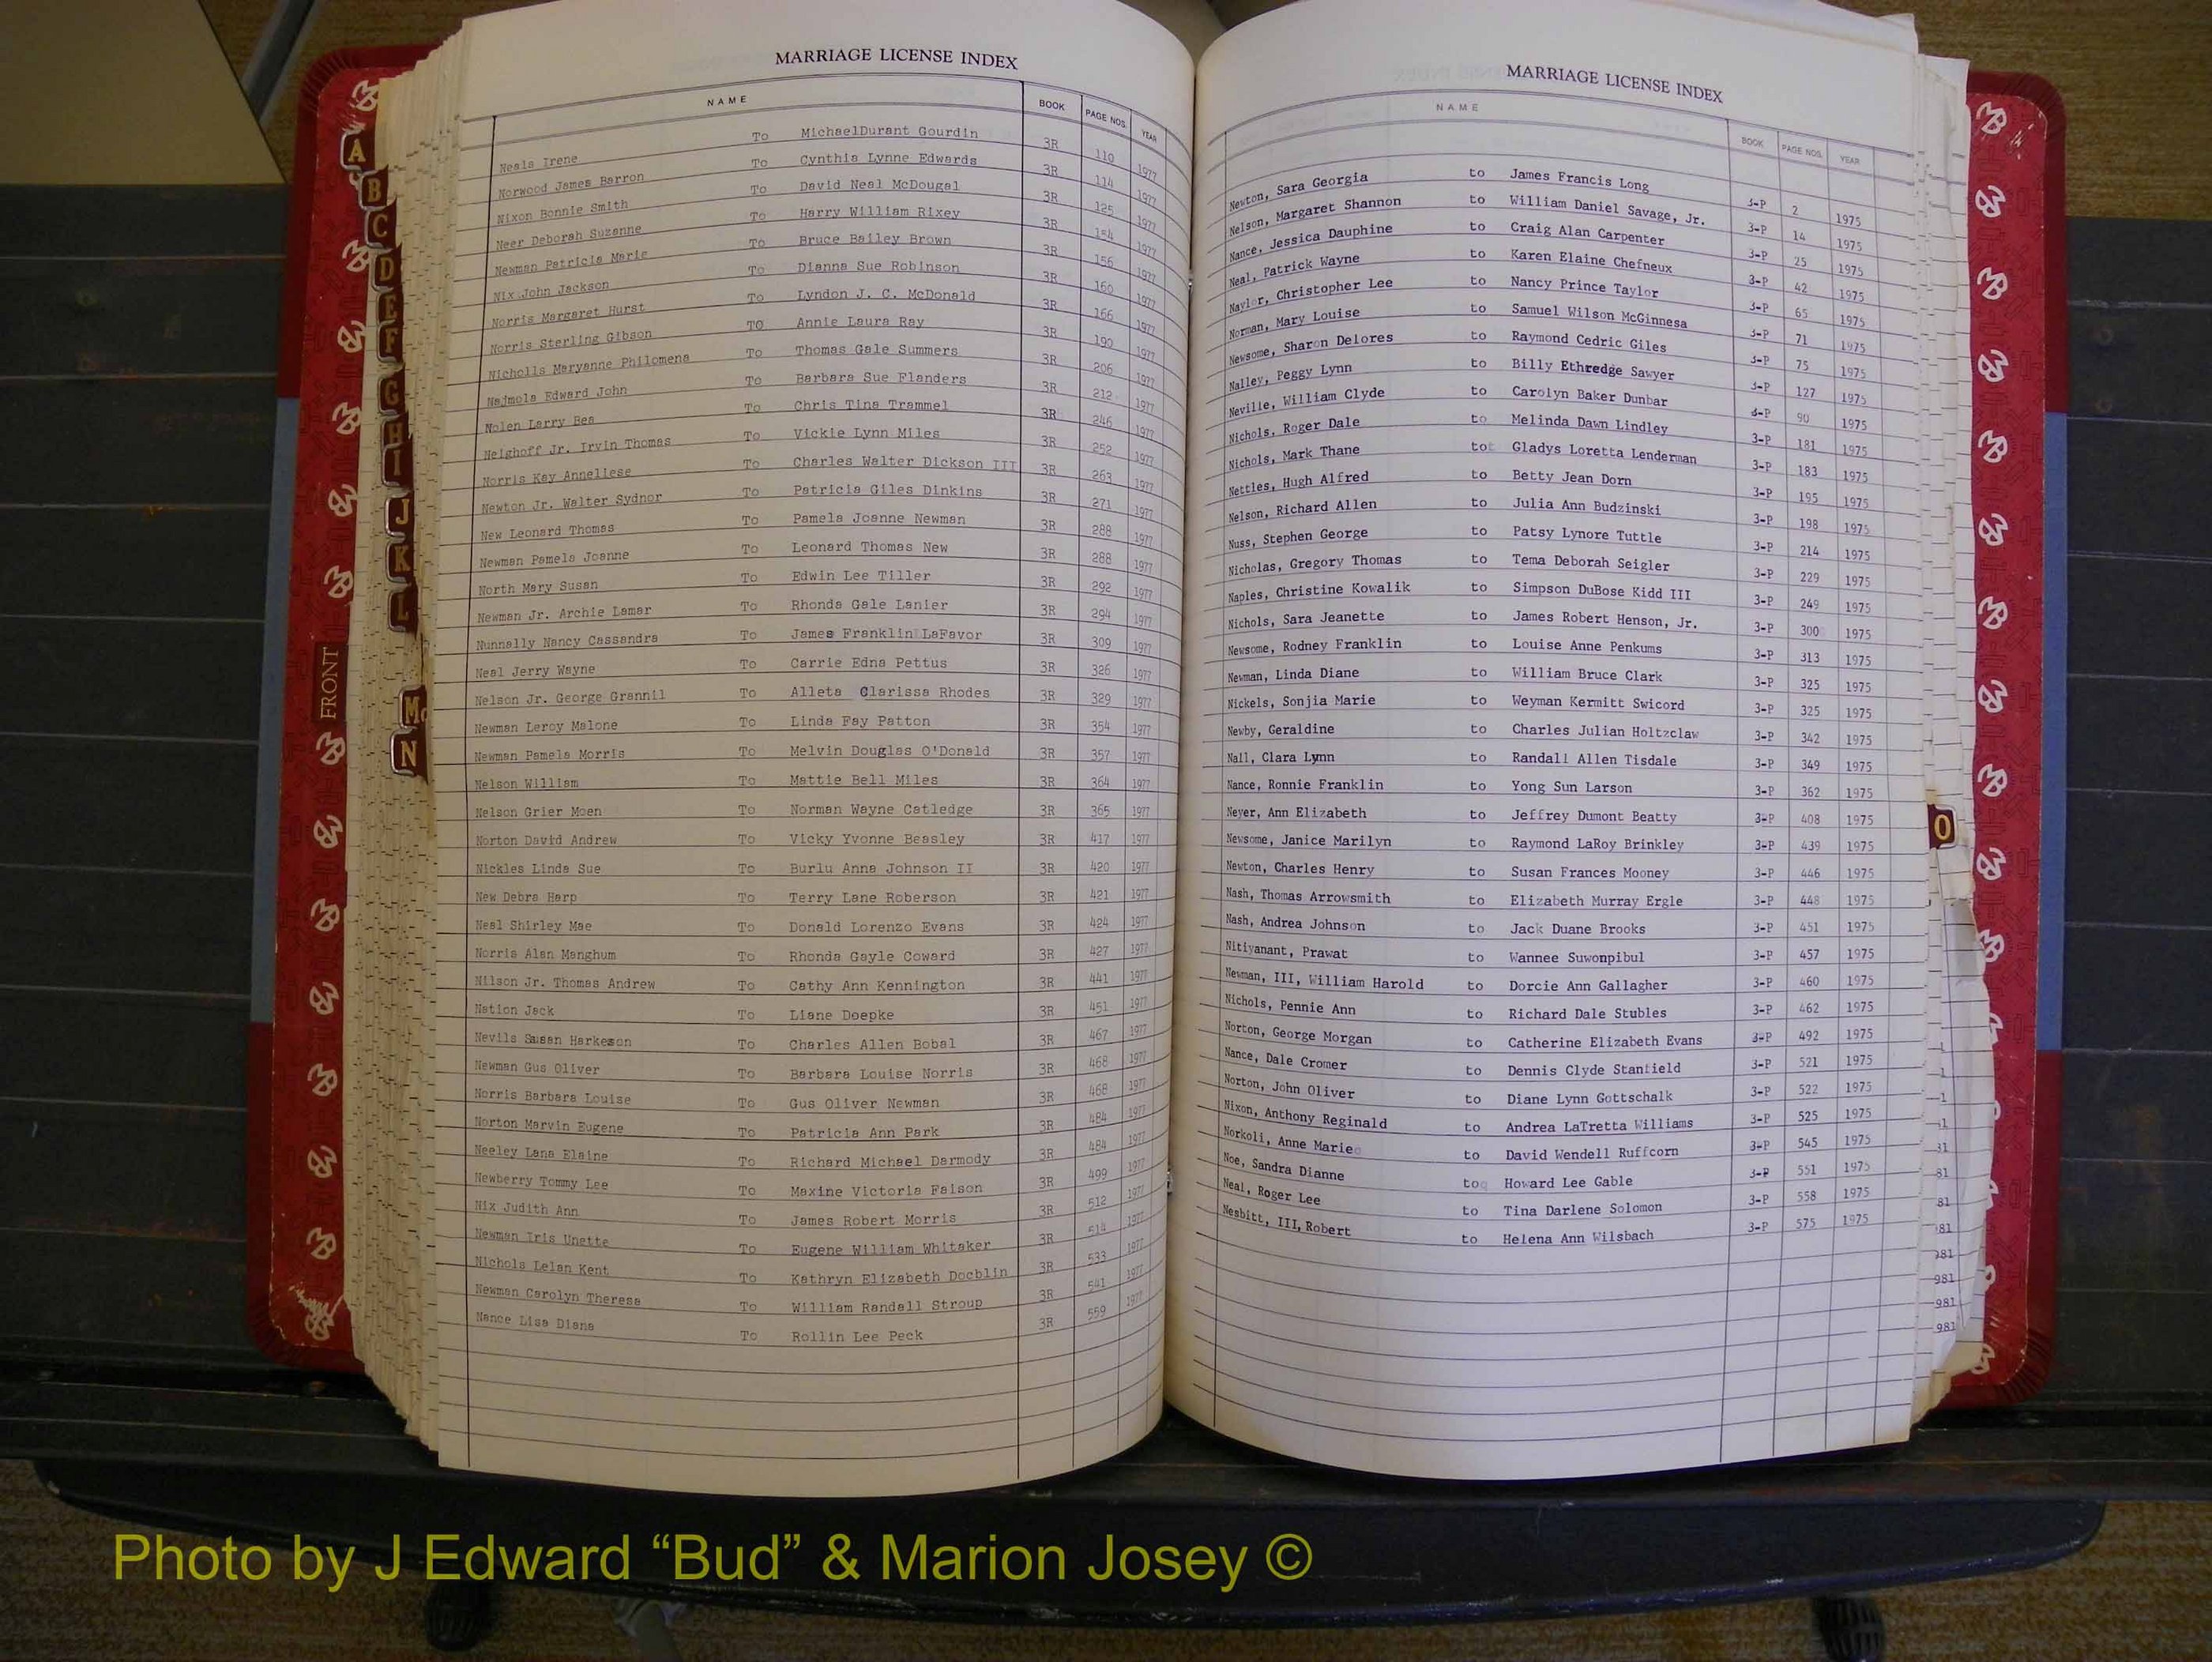 MARRIAGE LICENSE INDEX
NAME BOOK PAGE NOS. YEAR
Neals Irene To MichaelDurant Gourdin 3R 110 1977
Norwood James Barron To Cynthia Lynne Edwards 3R 114 1977
Nixon Bonnie Smith To David Neal McDougal 3R 125 1977
Neer Deborah Suzanne To Harry William Rixey 3R 154 1977
Newman Patricia Marie To Bruce Bailey Brown 3R 156 1977
Nix John Jackson To Dianna Sue Robinson 3R 160 1977
Norris Margaret Hurst To Lyndon J. C. McDonald 3R 166 1977
Norris Sterling Gibson TO Annie Laura Ray 3R 190 1977
Nicholls Maryanne Philomena To Thomas Gale Summers 3R 206 1977
Najmola Edward John To Barbara Sue Flanders 3R 212 1977
Nolen Larry Bea To Chris Tina Trammel 3R 246 1977
Neighoff Jr. Irvin Thomas To Vickie Lynn Miles 3R 252 1977
Norris Kay Anneliese To Charles Walter Dickson III 3R 263 1977
Newton Jr. Walter Sydnor To Patricia Giles Dinkins 3R 271 1977
New Leonard Thomas To Pamela Joanne Newman 3R 288 1977
Newman Pamela Joanne To Leonard Thomas New 3R 288 1977
North Mary Susan To Edwin Lee Tiller 3R 292 1977
Newman Jr. Archie Lamar To Rhonda Gale Lanier 3R 294 1977
Nunnally Nancy Cassandra To James Franklin LaFavor 3R 309 1977
Neal Jerry Wayne To Carrie Edna Pettus 3R 326 1977
Nelson Jr. George Grannil To Alleta Clarissa Rhodes 3R 329 1977
Newman Leroy Malone To Linda Fay Patton 3R 354 1977
Newman Pamela Morris To Melvin Douglas O'Donald 3R 357 1977
Nelson William To Mattie Bell Miles 3R 364 1977
Nelson Grier Moen To Norman Wayne Catledge 3R 365 1977
Norton David Andrew To Vicky Yvonne Beasley 3R 417 1977
Nickles Linda Sue To Burlu Anna Johnson II 3R 420 1977
New Debra Harp To Terry Lane Roberson 3R 421 1977
Neal Shirley Mae To Donald Lorenzo Evans 3R 424 1977
Norris Alan Manghum To Rhonda Gayle Coward 3R 427 1977
Nilson Jr. Thomas Andrew To Cathy Ann Kennington 3R 441 1977
Nation Jack To Liane Doepke 3R 451 1977
Nevils Susan Harkeson To Charles Allen Bobal 3R 467 1977
Newman Gus Oliver To Barbara Louise Norris 3R 468 1977
Norris Barbara Louise To Gus Oliver Newman 3R 468 1977
Norton Marvin Eugene To Patricia Ann Park 3R 484 1977
Neeley Lana Elaine To Richard Michael Darmody 3R 484 1977
Newberry Tommy Lee To Maxine Victoria Faison 3R 499 1977
Nix Judith Ann To James Robert Morris 3R 512 1977
Newman Iris Unette To Eugene William Whitaker 3R 514 1977
Nichols Lelan Kent To Kathryn Elizabeth Docblin 3R 533 1977
Newman Carolyn Theresa To William Randall Stroup 3R 541 1977
Nance Lisa Diana To Rollin Lee Peck 3R 559 1977
MARRIAGE LICENSE INDEX
NAME BOOK PAGE NOS. YEAR
Newton, Sara Georgia to James Francis Long 3-P 2 1975
Nelson, Margaret Shannon to William Daniel Savage, Jr. 3-P 14 1975
Nance, Jessica Dauphine to Craig Alan Carpenter 3-P 25 1975
Neal, Patrick Wayne to Karen Elaine Chefneux 3-P 42 1975
Naylor, Christopher Lee to Nancy Prince Taylor 3-P 65 1975
Norman, Mary Louise to Samuel Wilson McGinnesa 3-P 71 1975
Newsome, Sharon Delores to Raymond Cedric Giles 3-P 75 1975
Nalley, Peggy Lynn to Billy Ethredge Sawyer 3-P 127 1975
Neville, William Clyde to Carolyn Baker Dunbar 3-P 90 1975
Nichols, Roger Dale to Melinda Dawn Lindley 3-P 181 1975
Nichols, Mark Thane to Gladys Loretta Lenderman 3-P 183 1975
Nettles, Hugh Alfred to Betty Jean Dorn 3-P 195 1975
Nelson, Richard Allen to Julia Ann Budzinski 3-P 198 1975
Nuss, Stephen George to Patsy Lynore Tuttle 3-P 214 1975
Nicholas, Gregory Thomas to Tema Deborah Seigler 3-P 229 1975
Naples, Christine Kowalik to Simpson DuBose Kidd III 3-P 249 1975
Nichols, Sara Jeanette to James Robert Henson, Jr. 3-P 300 1975
Newsome, Rodney Franklin to Louise Anne Penkums 3-P 313 1975
Newman, Linda Diane to William Bruce Clark 3-P 325 1975
Nickels, Sonjia Marie to Weyman Kermitt Swicord 3-P 325 1975
Newby, Geraldine to Charles Julian Holtzclaw 3-P 342 1975
Nall, Clara Lynn to Randall Allen Tisdale 3-P 349 1975
Nance, Ronnie Franklin to Yong Sun Larson 3-P 362 1975
Neyer, Ann Elizabeth to Jeffrey Dumont Beatty 3-P 408 1975
Newsome, Janice Marilyn to Raymond LaRoy Brinkley 3-P 439 1975
Newton, Charles Henry to Susan Frances Mooney 3-P 446 1975
Nash, Thomas Arrowsmith to Elizabeth Murray Ergle 3-P 448 1975
Nash, Andrea Johnson to Jack Duane Brooks 3-P 451 1975
Nitiyanant, Prawat to Wannee Suwonpibul 3-P 457 1975
Newman, III, William Harold to Dorcie Ann Gallagher 3-P 460 1975
Nichols, Pennie Ann to Richard Dale Stubles 3-P 462 1975
Norton, George Morgan to Catherine Elizabeth Evans 3-P 492 1975
Nance, Dale Cromer to Dennis Clyde Stanfield 3-P 521 1975
Norton, John Oliver to Diane Lynn Gottschalk 3-P 522 1975
Nixon, Anthony Reginald to Andrea LaTretta Williams 3-P 525 1975
Norkoli, Anne Marie to David Wendell Ruffcorn 3-P 545 1975
Noe, Sandra Dianne to Howard Lee Gable 3-P 551 1975
Neal, Roger Lee to Tina Darlene Solomon 3-P 558 1975
Nesbitt, III, Robert to Helena Ann Wilsbach 3-P 575 1975
A
B
C
D
E
F
G
H
I
J
K
L
Mc
N
FRONT
O
Photo by J Edward “Bud” & Marion Josey ©